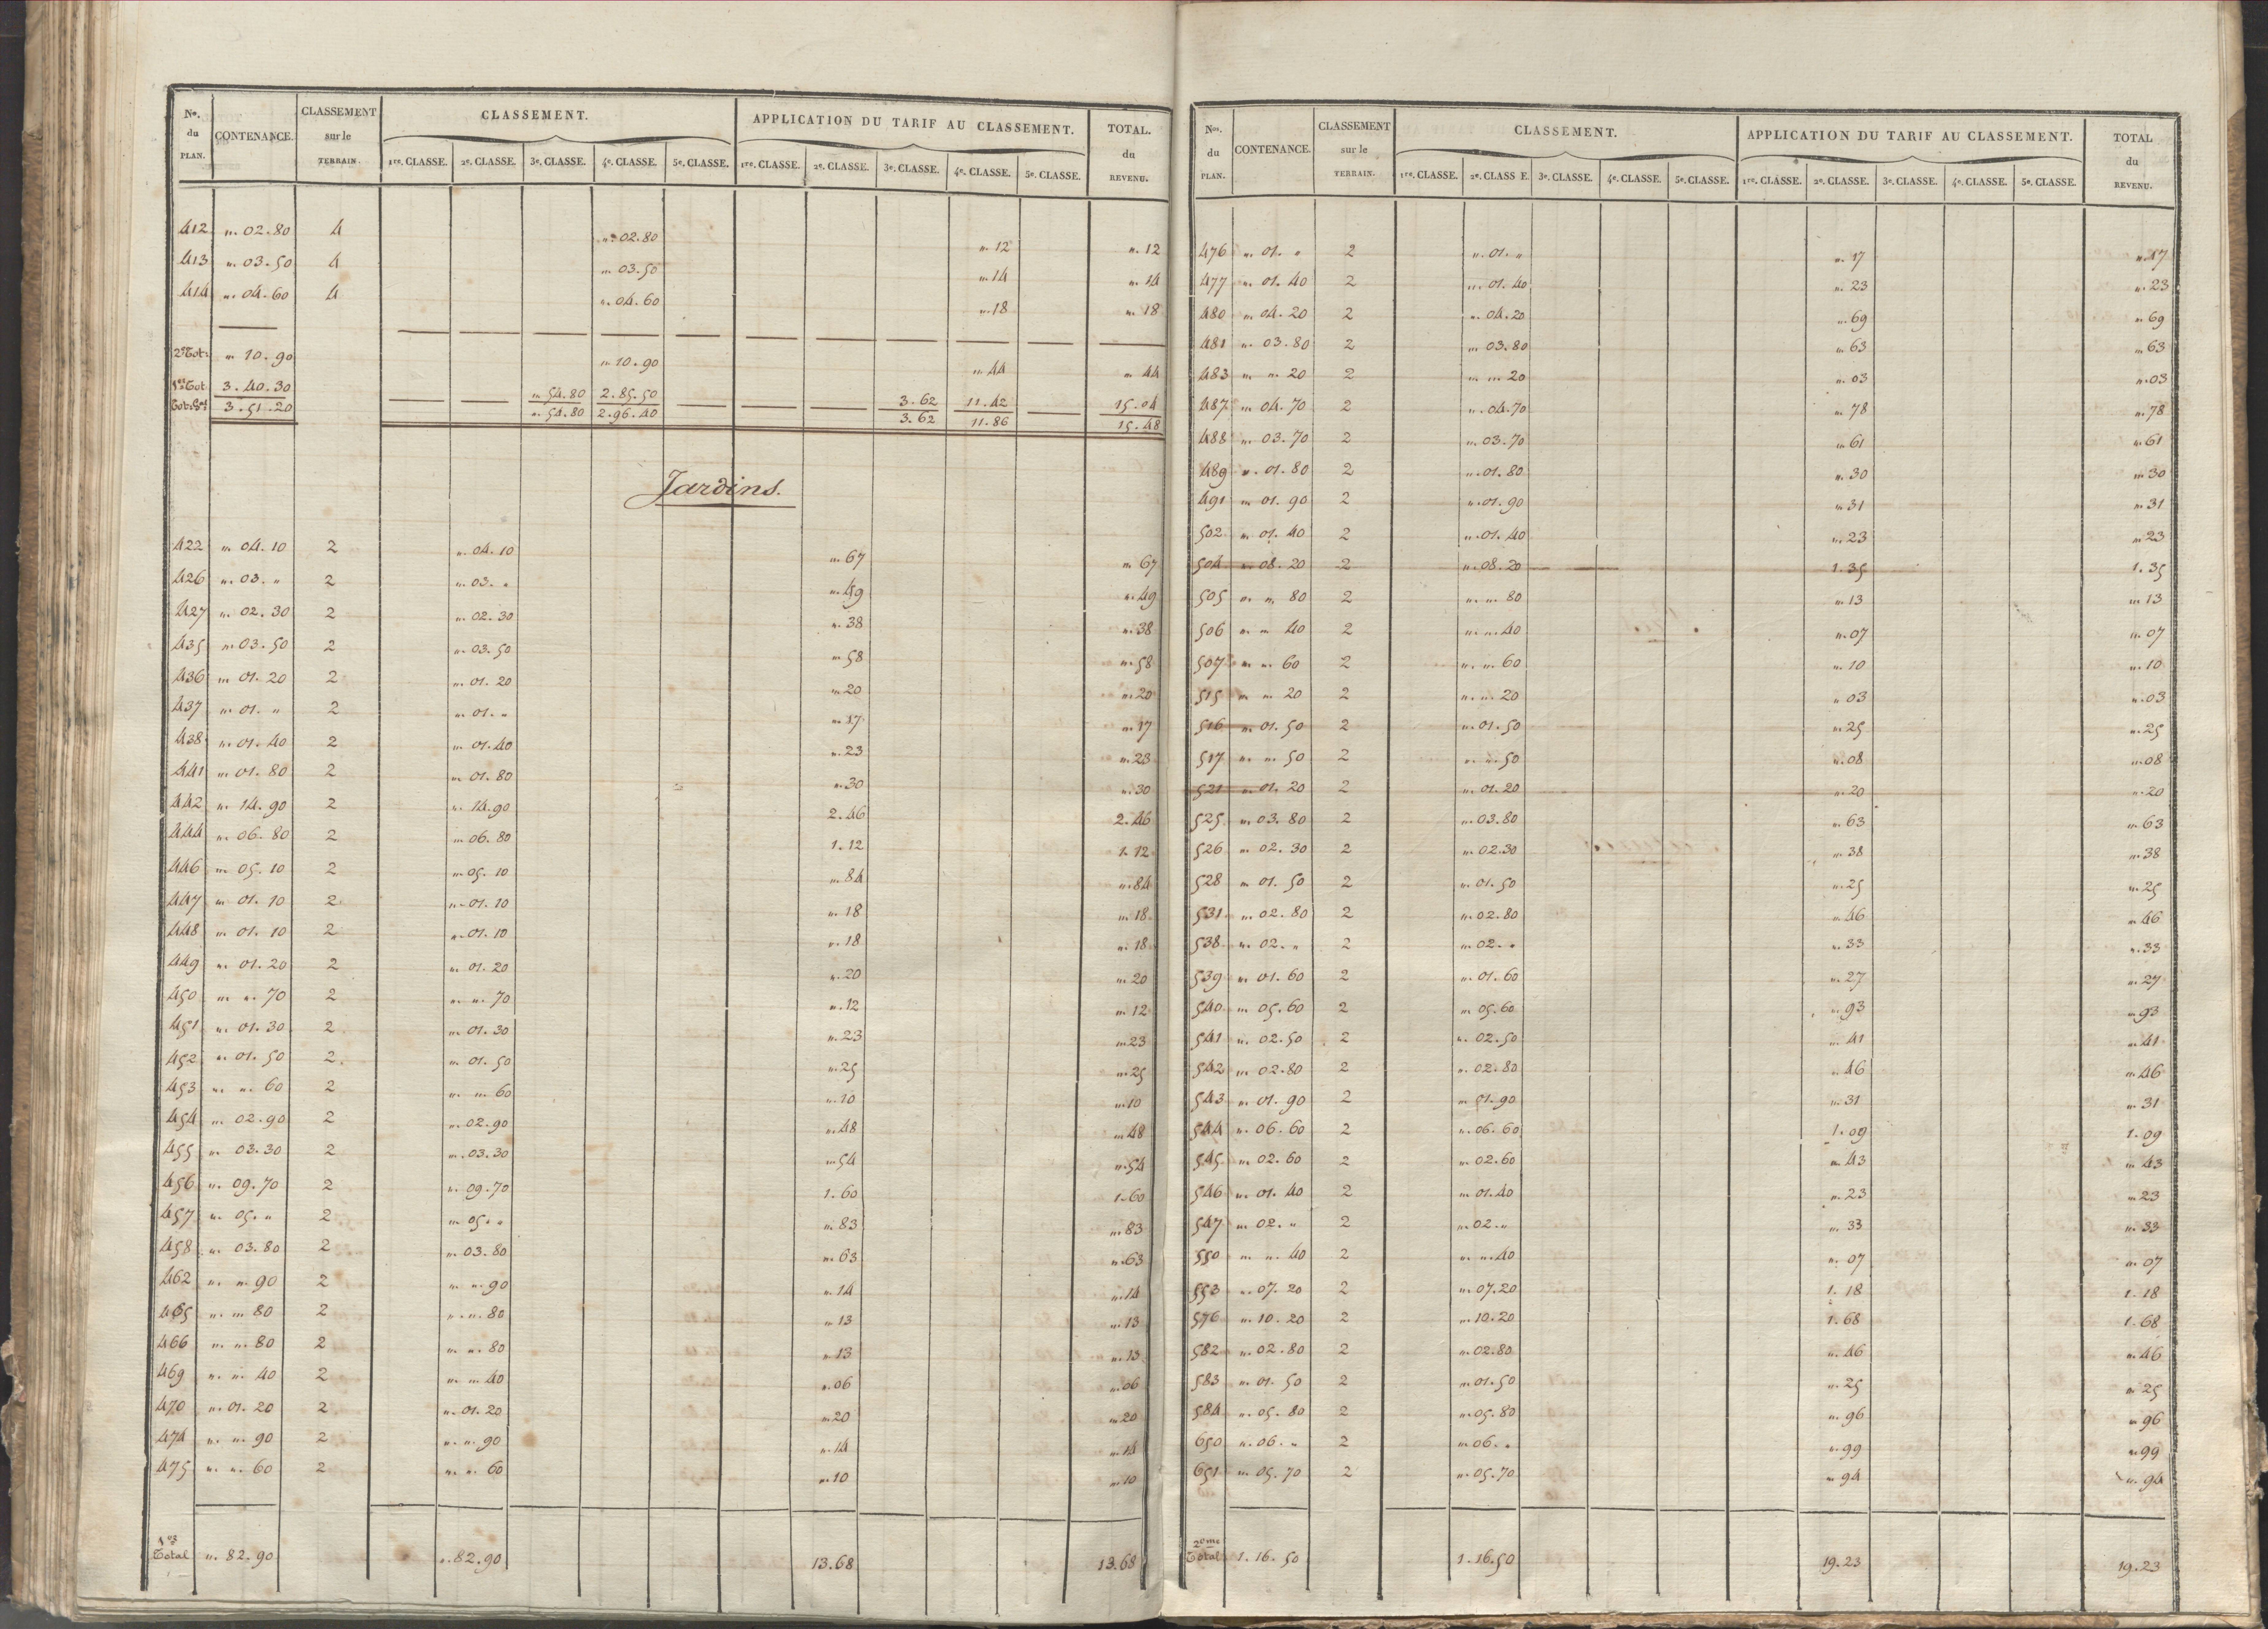 Nos. du PLAN. CONTENANCE. CLASSEMENT sur le TERRAIN. CLASSEMENT. APPLICATION DU TARIF AU CLASSEMENT. TOTAL. du REVENU.
1re. CLASSE. 2e. CLASSE. 3e. CLASSE. 4e. CLASSE. 5e. CLASSE. 1re. CLASSE. 2e. CLASSE. 3e. CLASSE. 4e. CLASSE. 5e. CLASSE.
412 „. 02.80 4 „. 02.80 „. 12 „. 12
413 „. 03.50 4 „. 03.50 „. 14 „. 14
414 „. 04.60 4 „. 04.60 „. 18 „. 18
2e Tot. „. 10.90 „. 10.90 „. 44 „. 44
1er Tot. 3.40.30 „. 54.80 2.85.50 3.62 11.42 15.04
Tot. Gal 3.51.20 „. 54.80 2.96.40 3.62 11.86 15.48
Jardins.
422 „. 04.10 2 „. 04.10 „. 67 „. 67
426 „. 03. „ 2 „. 03. „ „. 49 „. 49
427 „. 02.30 2 „. 02.30 „. 38 „. 38
435 „. 03.50 2 „. 03.50 „. 58 „. 58
436 „. 01.20 2 „. 01.20 „. 20 „. 20
437 „. 01. „ 2 „. 01. „ „. 17 „. 17
438 „. 01.40 2 „. 01.40 „. 23 „. 23
441 „. 01.80 2 „. 01.80 „. 30 „. 30
442 „. 14.90 2 „. 14.90 2.46 2.46
444 „. 06.80 2 „. 06.80 1.12 1.12
446 „. 05.10 2 „. 05.10 „. 84 „. 84
447 „. 01.10 2 „. 01.10 „. 18 „. 18
448 „. 01.10 2 „. 01.10 „. 18 „. 18
449 „. 01.20 2 „. 01.20 „. 20 „. 20
450 „. „. 70 2 „. „. 70 „. 12 „. 12
451 „. 01.30 2 „. 01.30 „. 23 „. 23
452 „. 01.50 2 „. 01.50 „. 25 „. 25
453 „. „. 60 2 „. „. 60 „. 10 „. 10
454 „. 02.90 2 „. 02.90 „. 48 „. 48
455 „. 03.30 2 „. 03.30 „. 54 „. 54
456 „. 09.70 2 „. 09.70 1.60 1.60
457 „. 05. „ 2 „. 05. „ „. 83 „. 83
458 „. 03.80 2 „. 03.80 „. 63 „. 63
462 „. „. 90 2 „. „. 90 „. 14 „. 14
465 „. „. 80 2 „. „. 80 „. 13 „. 13
466 „. „. 80 2 „. „. 80 „. 13 „. 13
469 „. „. 40 2 „. „. 40 „. 06 „. 06
470 „. 01.20 2 „. 01.20 „. 20 „. 20
474 „. „. 90 2 „. „. 90 „. 14 „. 14
475 „. „. 60 2 „. „. 60 „. 10 „. 10
1er Total „. 82.90 „. 82.90 13.68 13.68
Nos. du PLAN. CONTENANCE. CLASSEMENT sur le TERRAIN. CLASSEMENT. APPLICATION DU TARIF AU CLASSEMENT. TOTAL du REVENU.
1re. CLASSE. 2e. CLASS E. 3e. CLASSE. 4e. CLASSE. 5e. CLASSE. 1re. CLASSE. 2e. CLASSE. 3e. CLASSE. 4e. CLASSE. 5e. CLASSE.
476 „. 01. „ 2 „. 01. „ „. 17 „. 17
477 „. 01.40 2 „. 01.40 „. 23 „. 23
480 „. 04.20 2 „. 04.20 „. 69 „. 69
481 „. 03.80 2 „. 03.80 „. 63 „. 63
483 „. „. 20 2 „. „. 20 „. 03 „. 03
487 „. 04.70 2 „. 04.70 „. 78 „. 78
488 „. 03.70 2 „. 03.70 „. 61 „. 61
489 „. 01.80 2 „. 01.80 „. 30 „. 30
491 „. 01.90 2 „. 01.90 „. 31 „. 31
502 „. 01.40 2 „. 01.40 „. 23 „. 23
504 „. 08.20 2 „. 08.20 1.35 1.35
505 „. „. 80 2 „. „. 80 „. 13 „. 13
506 „. „. 40 2 „. „. 40 „. 07 „. 07
507 „. „. 60 2 „. „. 60 „. 10 „. 10
515 „. „. 20 2 „. „. 20 „. 03 „. 03
516 „. 01.50 2 „. 01.50 „. 25 „. 25
517 „. „. 50 2 „. „. 50 „. 08 „. 08
521 „. 01.20 2 „. 01.20 „. 20 „. 20
525 „. 03.80 2 „. 03.80 „. 63 „. 63
526 „. 02.30 2 „. 02.30 „. 38 „. 38
528 „. 01.50 2 „. 01.50 „. 25 „. 25
531 „. 02.80 2 „. 02.80 „. 46 „. 46
538 „. 02. „ 2 „. 02. „ „. 33 „. 33
539 „. 01.60 2 „. 01.60 „. 27 „. 27
540 „. 05.60 2 „. 05.60 „. 93 „. 93
541 „. 02.50 2 „. 02.50 „. 41 „. 41
542 „. 02.80 2 „. 02.80 „. 46 „. 46
543 „. 01.90 2 „. 01.90 „. 31 „. 31
544 „. 06.60 2 „. 06.60 1.09 1.09
545 „. 02.60 2 „. 02.60 „. 43 „. 43
546 „. 01.40 2 „. 01.40 „. 23 „. 23
547 „. 02. „ 2 „. 02. „ „. 33 „. 33
550 „. „. 40 2 „. „. 40 „. 07 „. 07
553 „. 07.20 2 „. 07.20 1.18 1.18
576 „. 10.20 2 „. 10.20 1.68 1.68
582 „. 02.80 2 „. 02.80 „. 46 „. 46
583 „. 01.50 2 „. 01.50 „. 25 „. 25
584 „. 05.80 2 „. 05.80 „. 96 „. 96
650 „. 06. „ 2 „. 06. „ „. 99 „. 99
651 „. 05.70 2 „. 05.70 „. 94 „. 94
2eme Total 1.16.50 1.16.50 19.23 19.23